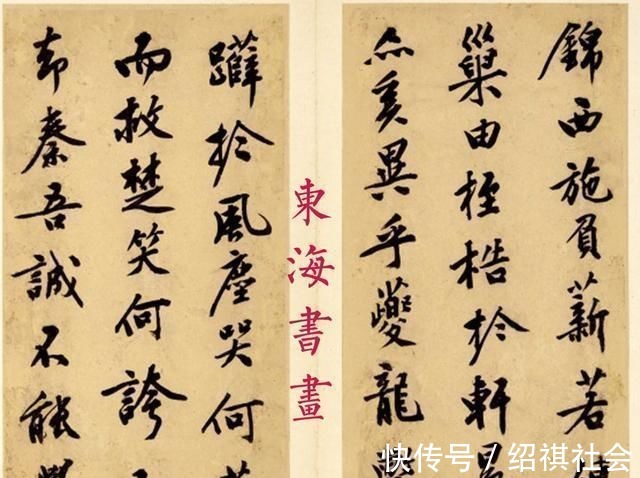 錦西施負薪若
巢由桎梏於軒
亦奚異乎夔龍
東海書畫
躠於風塵哭何
而救楚笑何誇
却秦吾誠不能
快传号 / 绍祺社会